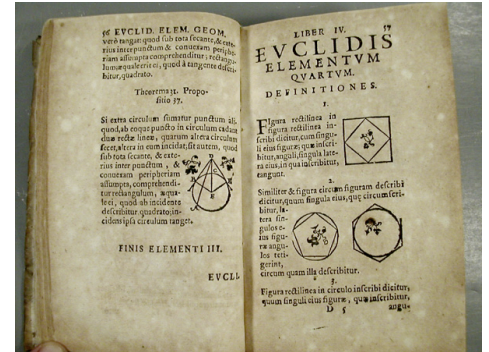 56 EVCLID. ELEM. GEOM.
verò tangat: quod sub tota secante, & exte-
rius inter punctum & conuexam periphe-
riam assumpta comprehenditur; rectangu-
lum æquale erit ei, quod à tangente descri-
bitur, quadrato.
Theorema 31. Propo-
sitio 37.
Si extra circulum sumatur punctum ali-
quod, ab eoque puncto in circulum cadant
duæ rectæ lineæ, quarum altera circulum
secet, altera in eum incidat, sit autem, quod
sub tota secante, & exte-
rius inter punctum, &
conuexam peripheriam
assumpta, comprehendi-
tur rectangulum, æqua-
le ei, quod ab incidente
describitur quadrato; in-
cidens ipsa circulum tanget.
FINIS ELEMENTI III.
EVCLI
LIBER IV. 57
EVCLIDIS
ELEMENTVM
QVARTVM.
DEFINITIONES.
1.
Figura rectilinea in
figura rectilinea in-
scribi dicitur, cum singu-
li eius figuræ, quæ inscri-
bitur, anguli, singula late-
ra eius, in qua inscribitur,
tangunt.
2.
Similiter & figura circum figuram describi
dicitur, quum singula eius, quæ circumscri-
bitur, la-
tera sin-
gulos e-
ius figu-
ræ angu-
los teti-
gerint,
circum quam illa describitur.
3.
Figura rectilinea in circulo inscribi dicitur,
quum singuli eius figuræ, quæ inscribitur,
D 5 angu-